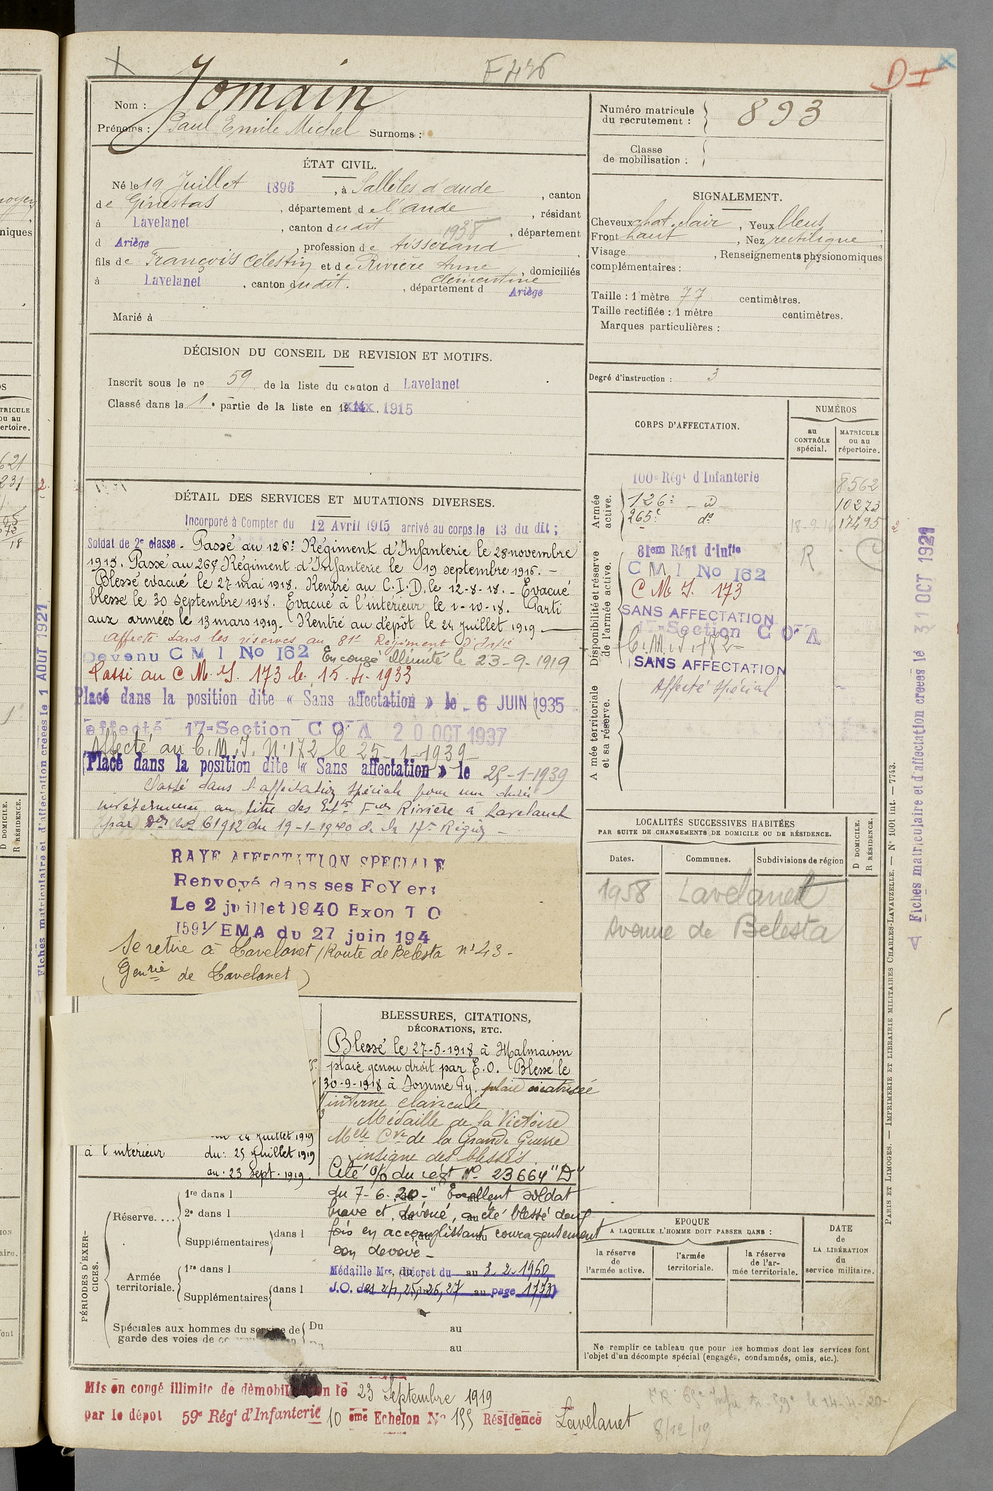 F426
D I
Nom : Jomain
Prénoms : Paul Emile Michel Surnoms :
Numéro matricule du recrutement : 893
Classe de mobilisation :
ÉTAT CIVIL.
Né le 19 Juillet 1896, à Sallèles d'aude, canton
de Ginestas, département de l'aude, résidant
à Lavelanet, canton dudit 1938, département
d Ariège, profession de tisserand
fils de François Celestin et de Rivière Anne Clémentine, domiciliés
à Lavelanet, canton dudit., département d Ariège
Marié à
SIGNALEMENT.
Cheveux chat. clair, Yeux bleus,
Front haut, Nez rectiligne,
Visage , Renseignements physionomiques
complémentaires :
Taille : 1 mètre 77 centimètres.
Taille rectifiée : 1 mètre centimètres.
Marques particulières :
Degré d'instruction : 3
DÉCISION DU CONSEIL DE REVISION ET MOTIFS.
Inscrit sous le no 59 de la liste du canton d Lavelanet
Classé dans la 1e partie de la liste en 1915
DÉTAIL DES SERVICES ET MUTATIONS DIVERSES.
Incorporé à Compter du 12 Avril 1915 arrivé au corps le 13 du dit ;
Soldat de 2e classe. Passé au 126e Régiment d'Infanterie le 28 novembre
1915. Passé au 265e Régiment d'Infanterie le 19 septembre 1916. —
Blessé évacué le 27 mai 1918. Rentré au C.I.D. le 12-8-18. — Evacué
blessé le 30 septembre 1918. Evacué à l'intérieur le 1-10-18. Parti
aux armées le 13 mars 1919. Rentré au dépôt le 24 juillet 1919 —
Affecté dans les réserves au 81e Régiment d'Infie
Devenu C M I No 162 En congé illimité le 23-9-1919
Passé au C.M.I. 173 le 15-4-1933
Placé dans la position dite « Sans affectation » le 6 JUIN 1935
affecté 17e Section C O A 20 OCT 1937
Affecté au C.M.I. No 172 le 25-1-1939
Placé dans la position dite « Sans affectation » le 25-1-1939
Classé dans l'affectation spéciale pour une durée
indéterminée au titre des Ets Fres Rivière à Lavelanet
par 61912 du 19-1-1940 de la 17e Région
RAYE AFFECTATION SPECIALE
Renvoyé dans ses FoYers
Le 2 juillet 1940 Exon T O
1591/EMA du 27 juin 194
Se retire à Lavelanet (Route de Belesta no 43 -
(Genrie de Lavelanet)
CORPS D'AFFECTATION.
NUMÉROS
au CONTRÔLE spécial.
MATRICULE ou au répertoire.
Armée active.
100e Régt d'Infanterie 8562
126e — d° 10273
265e d° 18-9-16 17495
Disponibilité et réserve de l'armée active.
81em Régt d'Infie R
C M I No 162
C M I. 173
SANS AFFECTATION
17e Section C O A
C.M.I. 172
SANS AFFECTATION
Armée territoriale et sa réserve.
Affecté spécial
LOCALITÉS SUCCESSIVES HABITÉES
PAR SUITE DE CHANGEMENTS DE DOMICILE OU DE RÉSIDENCE.
Dates. Communes. Subdivisions de région
D DOMICILE.
R RÉSIDENCE.
1958 Lavelanet
Avenue de Belesta
BLESSURES, CITATIONS,
DÉCORATIONS, ETC.
Blessé le 27-5-1918 à Malmaison
plaie genou droit par E.O. Blessé le
30-9-1918 à Somme Py. plaie
interne clavicule
Médaille de la Victoire
Mlle Cve de la Grande Guerre
insigne des blessés.
Cité O/ du régt No 23664 "D"
du 7-6-20 — "Excellent soldat
brave et dévoué, a été blessé deux
fois en accomplissant courageusement
son devoir —
Médaille Mre, décret du 3.2.1960
J.O. des 25, 26, 27 page 1773
du 24 juillet 1919
à l'intérieur du : 25 juillet 1919
au : 23 sept. 1919.
PÉRIODES D'EXERCICES.
Réserve....
1re dans l
2e dans l
Supplémentaires dans l
Armée territoriale.
1re dans l
Supplémentaires dans l
Spéciales aux hommes du service de garde des voies de
Du au
au
EPOQUE
A LAQUELLE L'HOMME DOIT PASSER DANS :
la réserve de l'armée active.
l'armée territoriale.
la réserve de l'armée territoriale.
DATE DE LA LIBÉRATION du service militaire.
Ne remplir ce tableau que pour les hommes dont les services font
l'objet d'un décompte spécial (engagés, condamnés, omis, etc.).
Mis en congé illimité de démobilisation le 23 Septembre 1919
par le dépôt 59e Régt d'Infanterie 10 ème Echelon No 155 Résidence Lavelanet
8/12/19
PARIS ET LIMOGES. — IMPRIMERIE ET LIBRAIRIE MILITAIRES CHARLES-LAVAUZELLE. — No 1001 int. — 7743.
Fiches matriculaire et d'affectation créées le 31 OCT 1921
Fiches matriculaire et d'affectation créées le 1 AOUT 1921